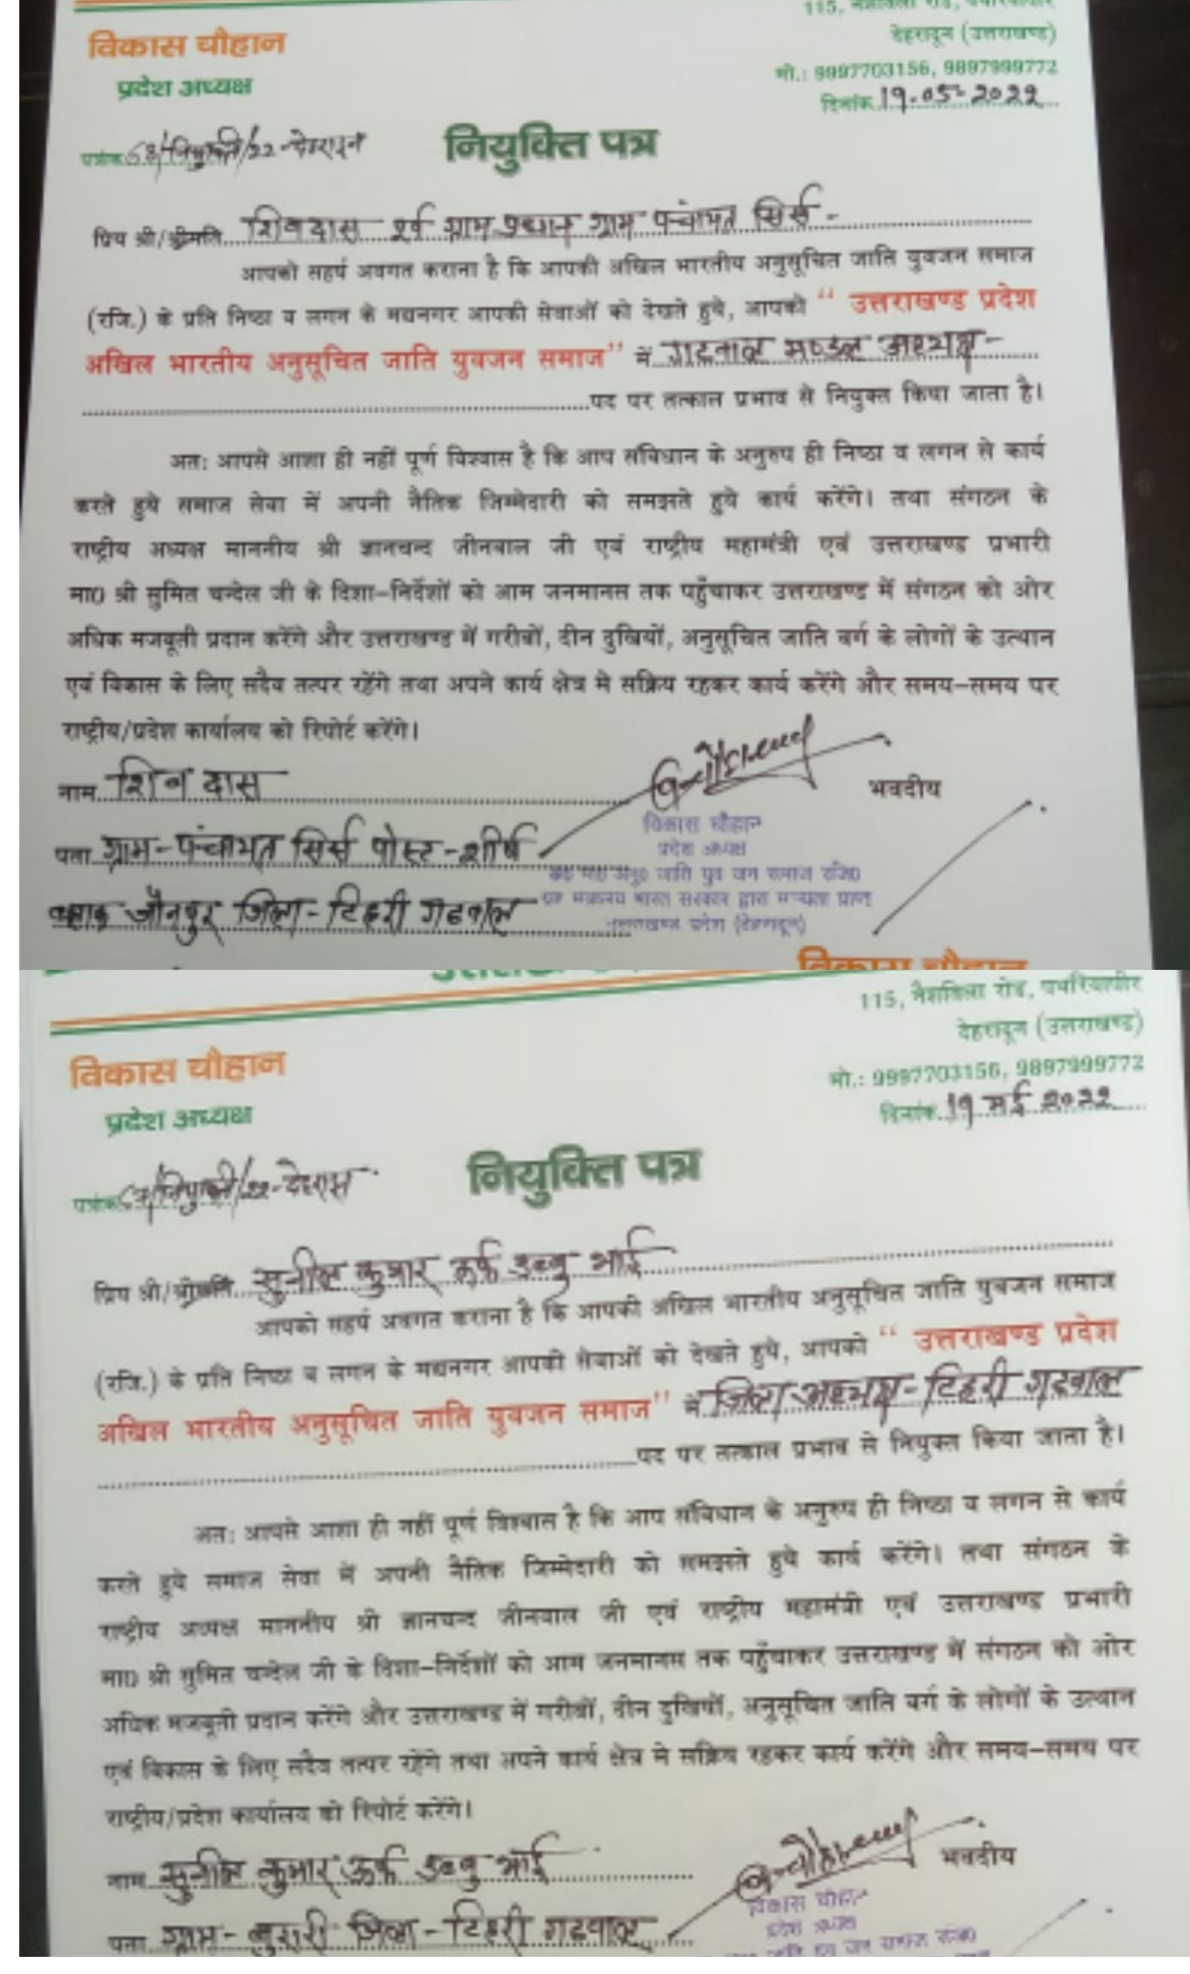 115, नेशविला रोड,
विकास चौहान
देहरादून (उत्तराखण्ड)
प्रदेश अध्यक्ष
मो.: 9997703156, 9897999772
दिनांक 19.05-2022
पत्रांक 68/नियुक्ती/22-देहरादून
नियुक्ति पत्र
प्रिय श्री/श्रीमति शिवदास पूर्व ग्राम प्रधान ग्राम पंचायत सिर्स -
आपको सहर्ष अवगत कराना है कि आपकी अखिल भारतीय अनुसूचित जाति युवजन समाज
(रजि.) के प्रति निष्ठा व लगन के मद्यनगर आपकी सेवाओं को देखते हुये, आपको " उत्तराखण्ड प्रदेश
अखिल भारतीय अनुसूचित जाति युवजन समाज" में गढवाल मण्डल अध्यक्ष-
पद पर तत्काल प्रभाव से नियुक्त किया जाता है।
अतः आपसे आशा ही नहीं पूर्ण विश्वास है कि आप संविधान के अनुरुप ही निष्ठा व लगन से कार्य
करते हुये समाज सेवा में अपनी नैतिक जिम्मेदारी को समझते हुये कार्य करेंगे। तथा संगठन के
राष्ट्रीय अध्यक्ष माननीय श्री ज्ञानचन्द जीनवाल जी एवं राष्ट्रीय महामंत्री एवं उत्तराखण्ड प्रभारी
मा0 श्री सुमित चन्देल जी के दिशा-निर्देशों को आम जनमानस तक पहुँचाकर उत्तराखण्ड में संगठन को ओर
अधिक मजबूती प्रदान करेंगे और उत्तराखण्ड में गरीबों, दीन दुखियों, अनुसूचित जाति वर्ग के लोगों के उत्थान
एवं विकास के लिए सदैव तत्पर रहेंगे तथा अपने कार्य क्षेत्र मे सक्रिय रहकर कार्य करेंगे और समय-समय पर
राष्ट्रीय/प्रदेश कार्यालय को रिपोर्ट करेंगे।
नाम शिव दास
भवदीय
विकास चौहान
पता ग्राम-पंचायत सिर्स पोस्ट-शीर्ष
प्रदेश अध्यक्ष
जाति युव जन समाज रजि0
मंत्रालय भारत सरकार द्वारा मान्यता प्राप्त
ब्लाक जौनपुर जिला-टिहरी गढवाल
उत्तराखण्ड प्रदेश (देहरादून)
विकास चौहान
115, नेशविला रोड, पथरियापीर
देहरादून (उत्तराखण्ड)
विकास चौहान
मो.: 9997703156, 9897999772
प्रदेश अध्यक्ष
दिनांक 19 मई 2022
पत्रांक 67/नियुक्ती/22-देहरादून
नियुक्ति पत्र
प्रिय श्री/श्रीमति सुनील कुमार ऊर्फ डब्बु भाई
आपको सहर्ष अवगत कराना है कि आपकी अखिल भारतीय अनुसूचित जाति युवजन समाज
(रजि.) के प्रति निष्ठा व लगन के मद्यनगर आपकी सेवाओं को देखते हुये, आपको " उत्तराखण्ड प्रदेश
अखिल भारतीय अनुसूचित जाति युवजन समाज" में जिला अध्यक्ष-टिहरी गढवाल
पद पर तत्काल प्रभाव से नियुक्त किया जाता है।
अतः आपसे आशा ही नहीं पूर्ण विश्वास है कि आप संविधान के अनुरुप ही निष्ठा व लगन से कार्य
करते हुये समाज सेवा में अपनी नैतिक जिम्मेदारी को समझते हुये कार्य करेंगे। तथा संगठन के
राष्ट्रीय अध्यक्ष माननीय श्री ज्ञानचन्द जीनवाल जी एवं राष्ट्रीय महामंत्री एवं उत्तराखण्ड प्रभारी
मा0 श्री सुमित चन्देल जी के दिशा-निर्देशों को आम जनमानस तक पहुँचाकर उत्तराखण्ड में संगठन को ओर
अधिक मजबूती प्रदान करेंगे और उत्तराखण्ड में गरीबों, दीन दुखियों, अनुसूचित जाति वर्ग के लोगों के उत्थान
एवं विकास के लिए सदैव तत्पर रहेंगे तथा अपने कार्य क्षेत्र मे सक्रिय रहकर कार्य करेंगे और समय-समय पर
राष्ट्रीय/प्रदेश कार्यालय को रिपोर्ट करेंगे।
नाम सुनील कुमार ऊर्फ डब्बु भाई
भवदीय
विकास चौहान
पता ग्राम- जिला-टिहरी गढवाल
प्रदेश अध्यक्ष
जाति युव जन समाज रजि0